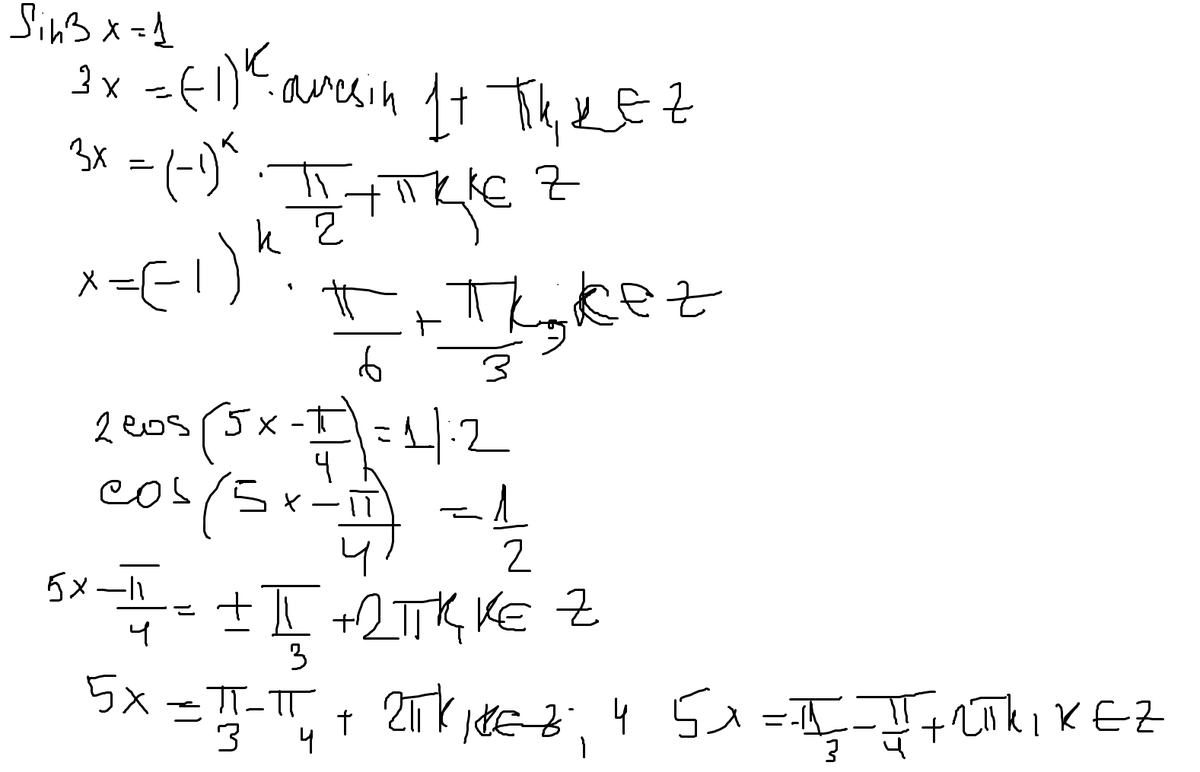 Sin3x=1
3x=(-1)^k·arcsin 1+πk, k∈Z
3x=(-1)^k·π/2+πk, k∈Z
x=(-1)^k·π/6+πk/3, k∈Z
2cos(5x-π/4)=1|:2
cos(5x-π/4)=1/2
5x-π/4=±π/3+2πk, k∈Z
5x=π/3-π/4+2πk, k∈Z; 4 5x=-π/3-π/4+2πk, k∈Z